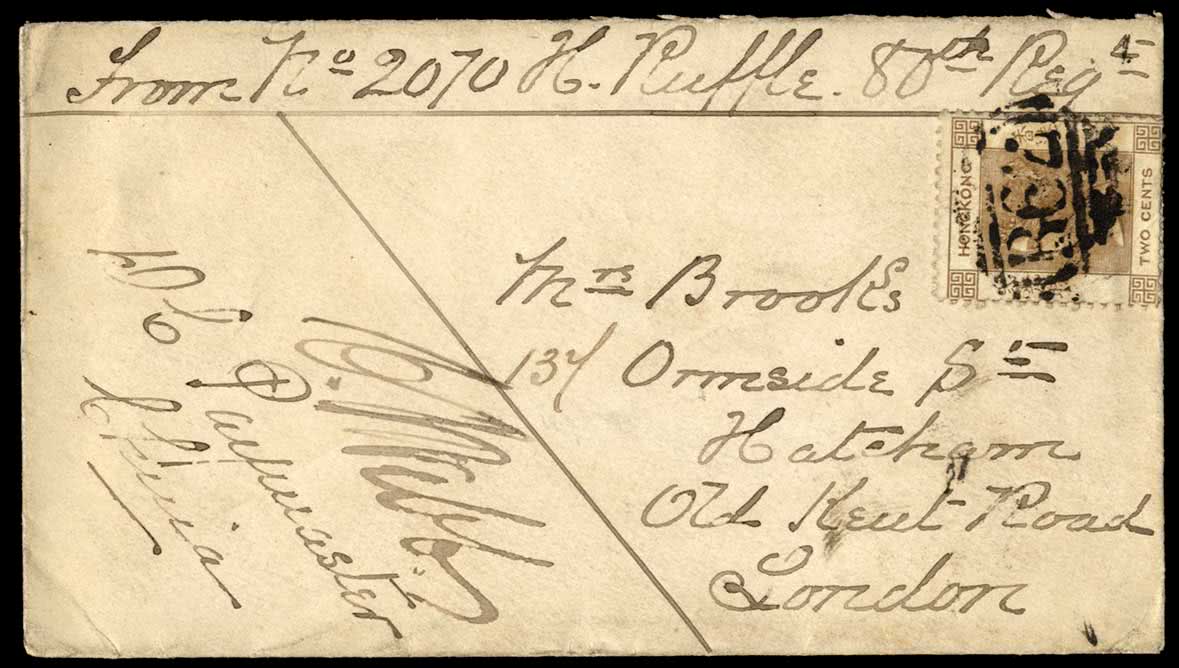 From No 2070 H. Ruffle. 80th Regt
HONG KONG
TWO CENTS
B62
Mrs Brooks
137 Ormside St
Hatcham
Old Kent Road
London
Paymaster
China